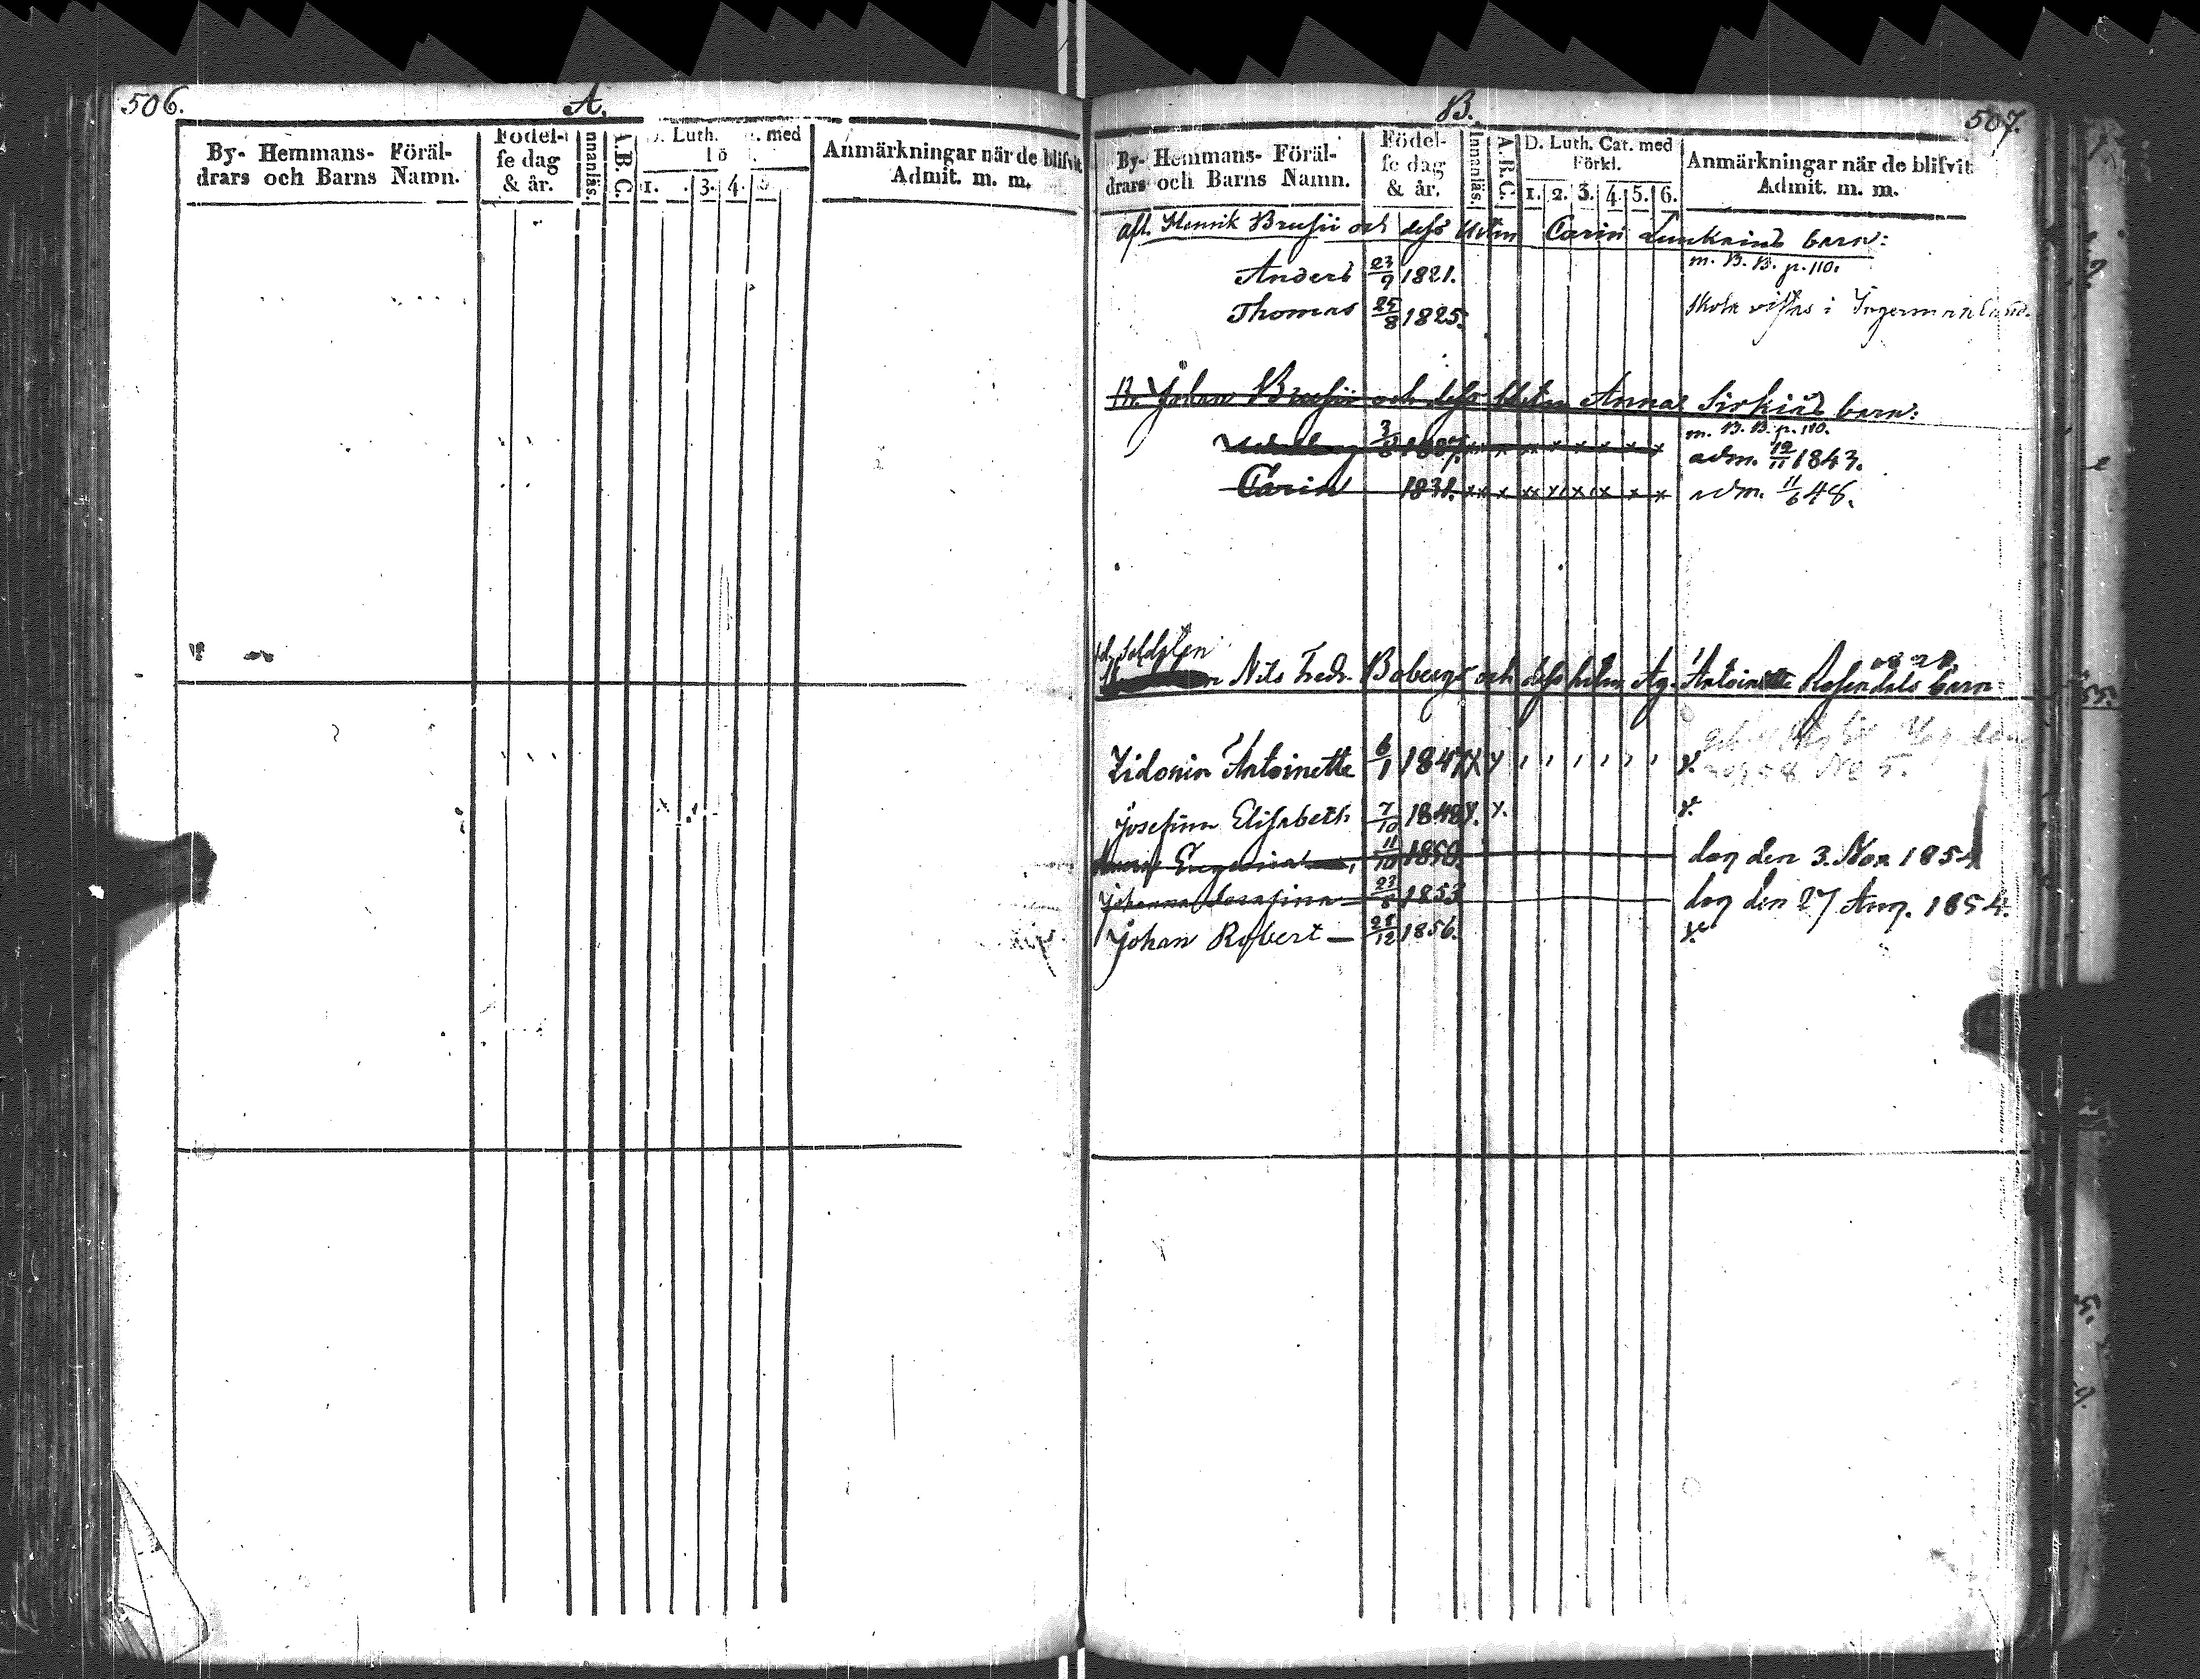 506.
A.
By- Hemmans- Föräl-
drars och Barns Namn.
Födel-
se dag
& år.
Innanläs.
A.B.C.
D. Luth. med
1. 3. 4. 5
Anmärkningar när de blifvit
Admit. m. m.
B.
507.
By- Hemmans- Föräl-
drars och Barns Namn.
Födel-
se dag
& år.
Innanläs.
A.B.C.
D. Luth. Cat. med
Förkl.
1. 2. 3. 4. 5. 6.
Anmärkningar när de blifvit
Admit. m. m.
afl. Henrik Brusii och dess Carin barn:
m. B. B. p. 110.
Anders 23/9 1821.
Thomas 25/8 1825. skola vistas i Ingermanland.
Johan Brusii och dess Anna Sirkiäs barn:
m. B. B. p. 110.
adm. 12/11 1843.
Carin 1831. x x x x x x x x adm. 11/6 48.
Soldaten
Nils Fredr. Bobergs och dess hstru Antoinette Rosendals barn
Zidonia Antoinette 6/1 1847 X Y
Josefina Elisabeth 7/10 1848 Y. Y.
11/10 1850. dog den 3. Nov. 1854
Johanna Serafina 1853 dog den 27 Aug. 1854.
Johan Robert — 1856.